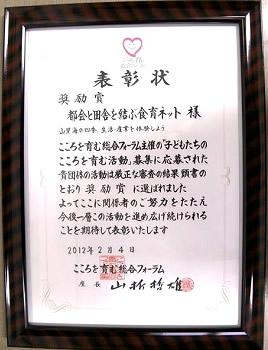 表彰状
奨励賞
都会と田舎を結ぶ食育ネット 様
山里海の四季 生活・産業を体験しよう
こころを育む総合フォーラム主催の「子どもたちの
こころを育む活動」募集に応募された
貴団体の活動は厳正な審査の結果頭書の
とおり奨励賞に選ばれました
よってここに関係者のご努力をたたえ
今後一層この活動を進め広げ続けられる
ことを期待して表彰いたします
2012年2月4日
こころを育む総合フォーラム
座長 山折哲雄